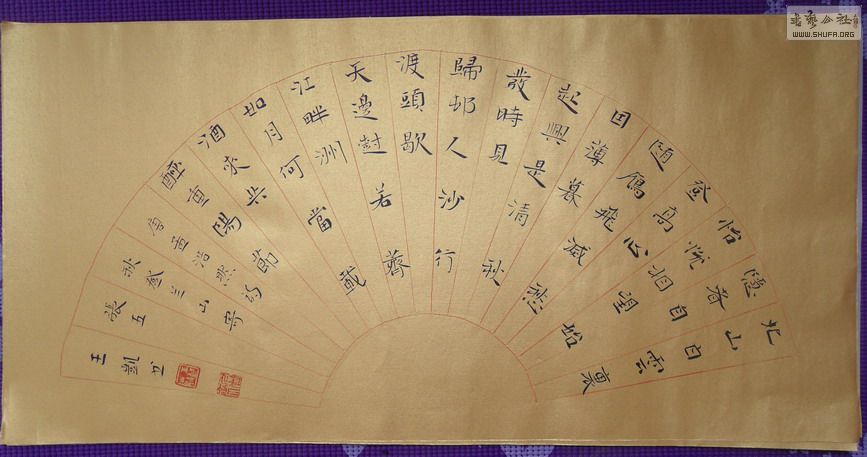 北山白雲裏
隐者自
怡悦相望始
登高心
随鴈飛滅愁
因薄暮
起興是清秋
發時見
歸邨人沙行
渡頭歇
天邊尌若薺
江畔洲
如月何當載
酒來共
醉重陽節
唐孟浩然詩
秋登兰山寄
張五
王凱书
書藝公社
WWW.SHUFA.ORG